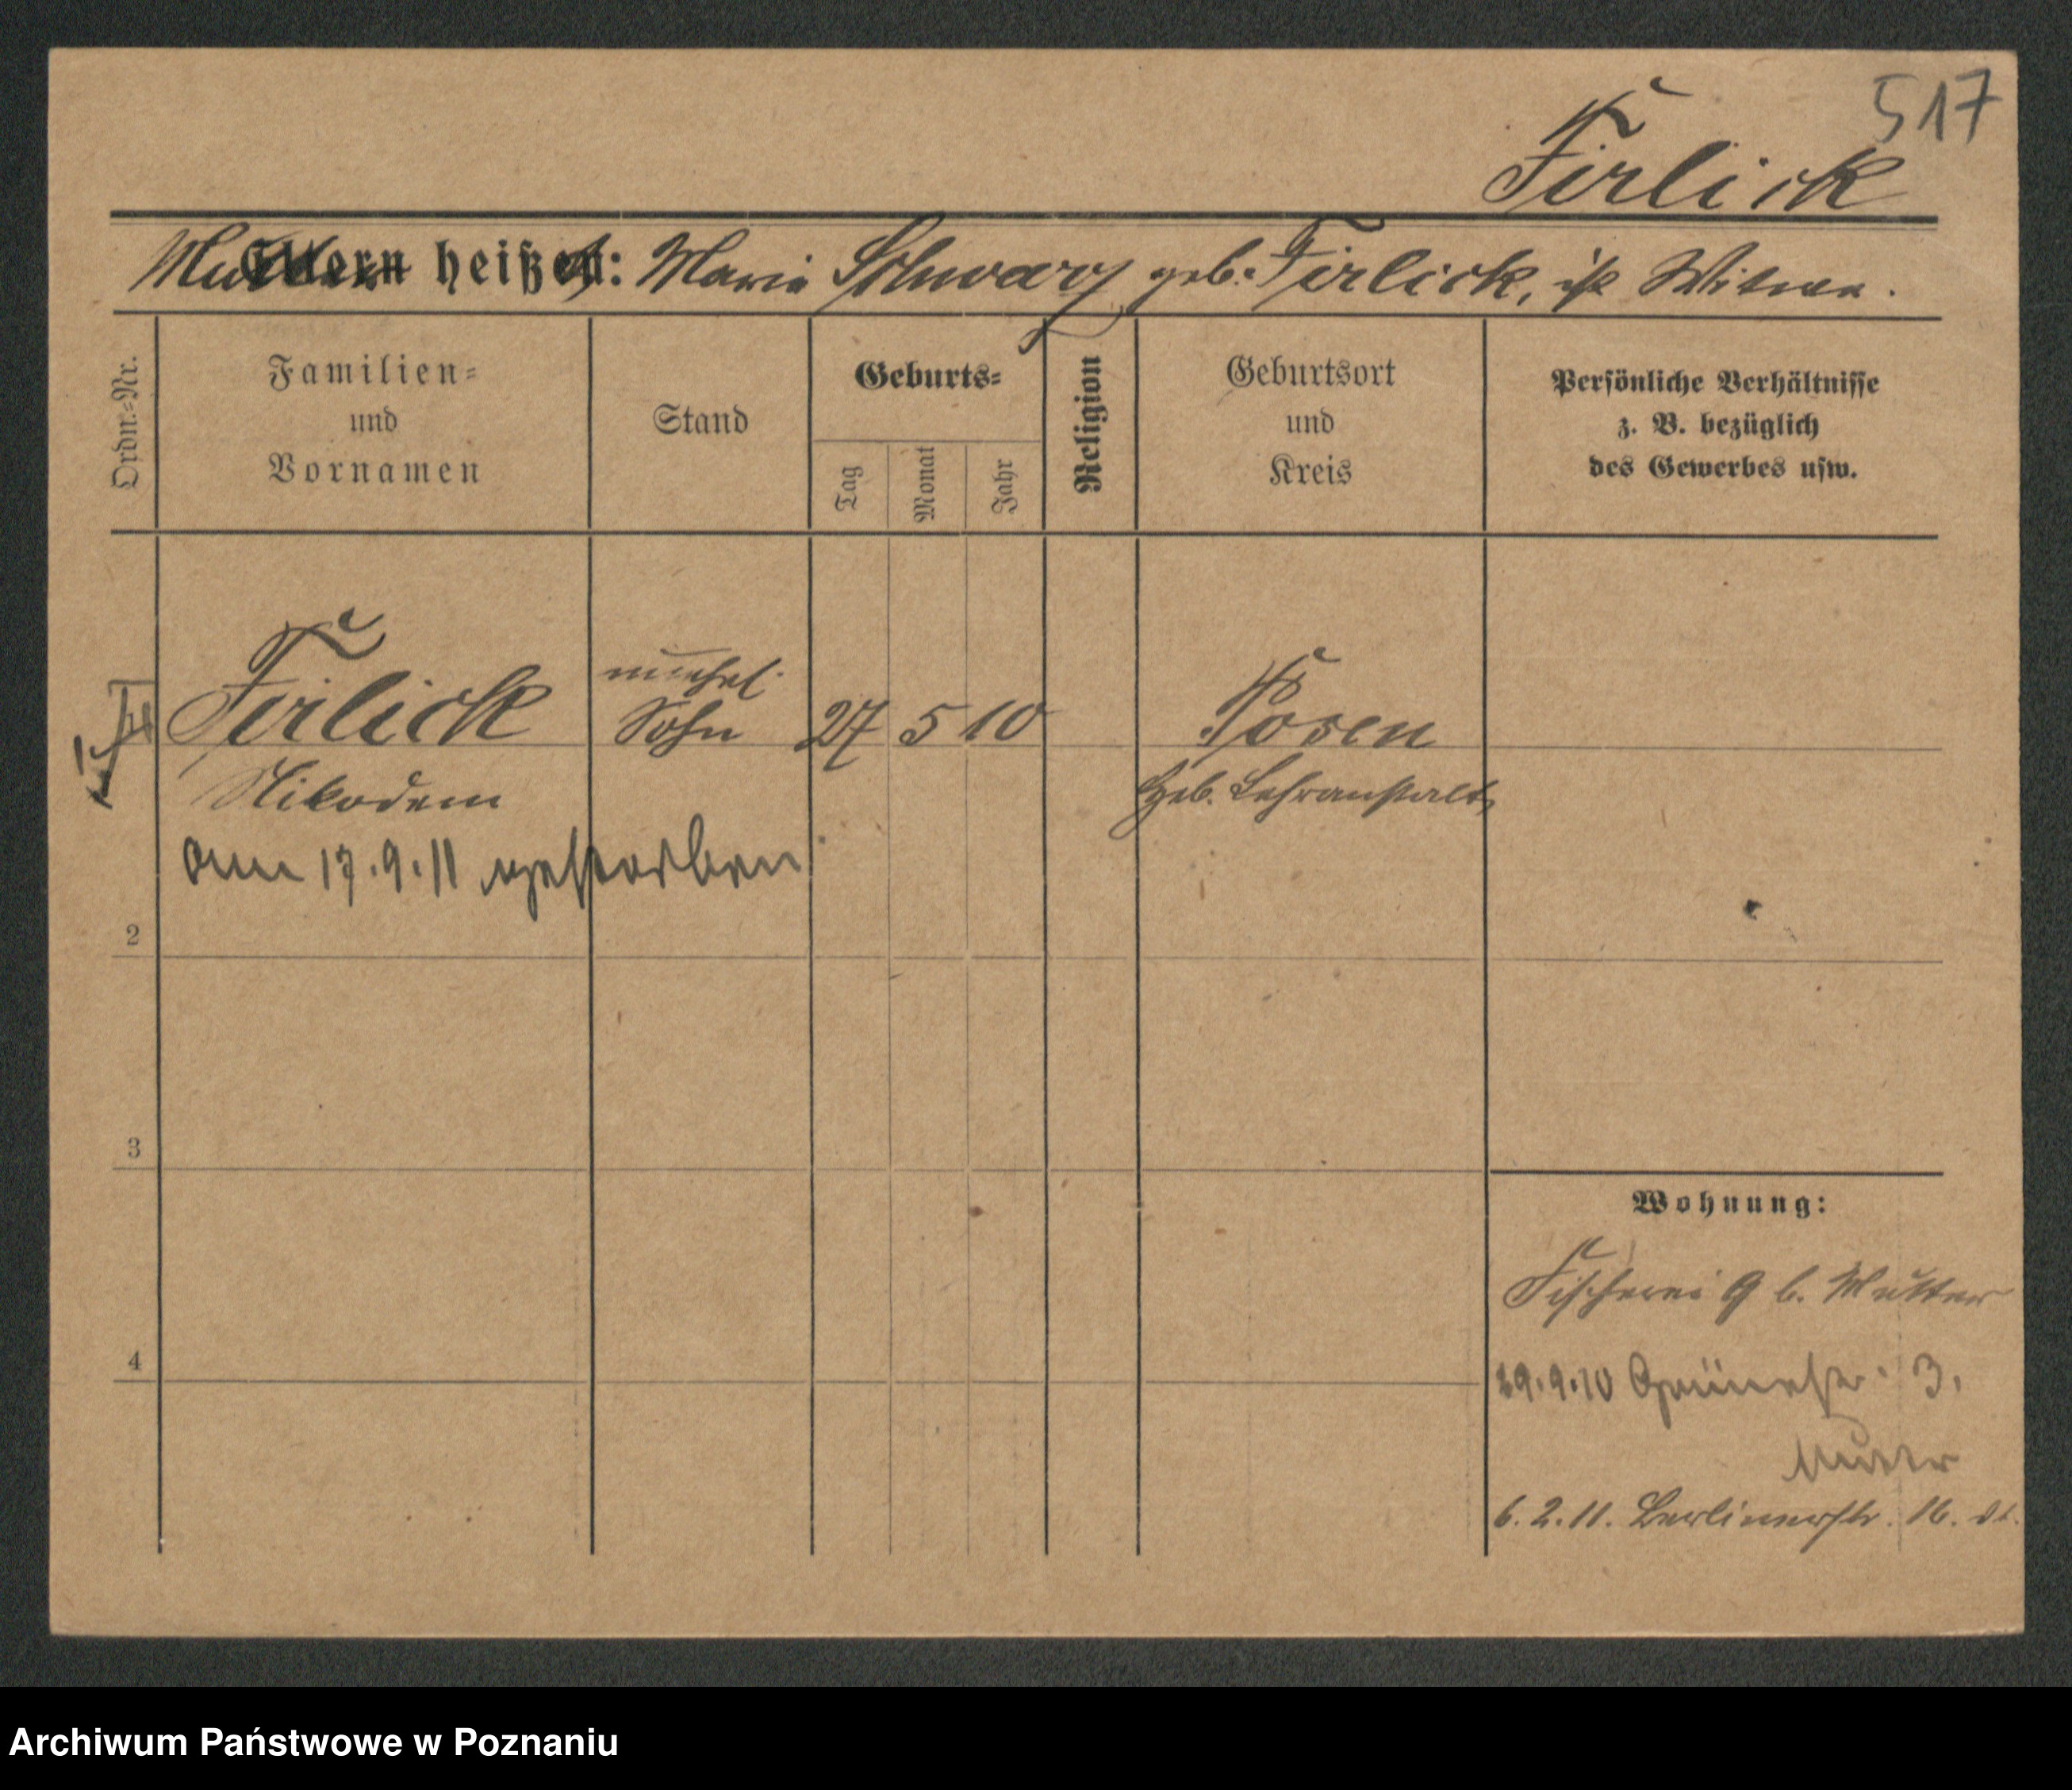 517
Firlick
Mutter heißt: Marie Schwarz geb. Firlick, ist Witwe.
Ordn.-Nr.
Familien-
und
Vornamen
Stand
Geburts-
Tag
Monat
Jahr
Religion
Geburtsort
und
Kreis
Persönliche Verhältnisse
z. B. bezüglich
des Gewerbes usw.
Firlick
unehel.
Sohn
27 5 10
Posen
Nikodem
Heb. Lehranstalt
am 17.9.11 gestorben
2
3
Wohnung:
Fischerei 9 b. Mutter
4
29.9.10 Grünestr. 3.
Mutter
6.2.11. Berlinerstr. 16. dt.
Archiwum Państwowe w Poznaniu